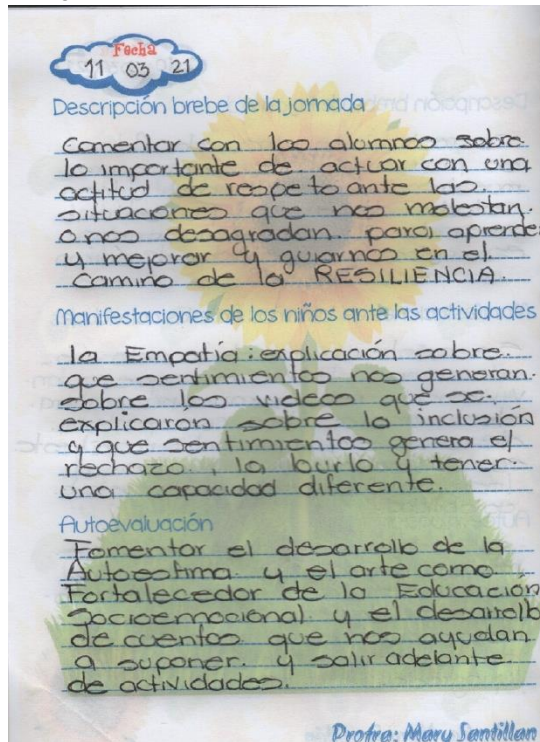 Fecha
11 03 21
Descripción brebe de la jornada
Comentar con los alumnos sobre
lo importante de actuar con una
actitud de respeto ante las
situaciones que nos molestan
o nos desagradan para aprende
y mejorar y guiarnos en el
camino de la RESILIENCIA
Manifestaciones de los niños ante las actividades
la Empatía: explicación sobre
que sentimientos nos generan
sobre los videos que se
explicaron sobre la inclusión
y que sentimientos genera el
rechazo, la burla y tener
una capacidad diferente.
Autoevaluación
Fomentar el desarrollo de la
Autoestima y el arte como
Fortalecedor de la Educación
Socioemocional y el desarrollo
de cuentos que nos ayudan
a suponer. y salir adelante
de actividades.
Profra: Mary Santillan